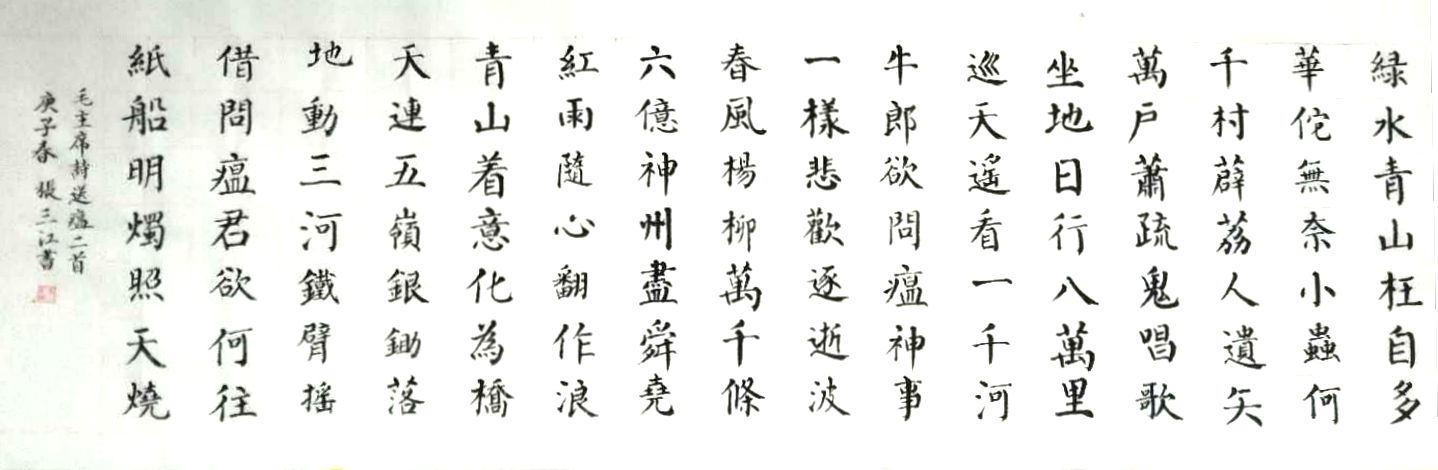 綠水青山枉自多
華佗無奈小蟲何
千村薜荔人遺矢
萬戶蕭疏鬼唱歌
坐地日行八萬里
巡天遙看一千河
牛郎欲問瘟神事
一樣悲歡逐逝波
春風楊柳萬千條
六億神州盡舜堯
紅雨隨心翻作浪
青山着意化為橋
天連五嶺銀鋤落
地動三河鐵臂搖
借問瘟君欲何往
紙船明燭照天燒
毛主席詩送瘟二首
庚子春 張三江書